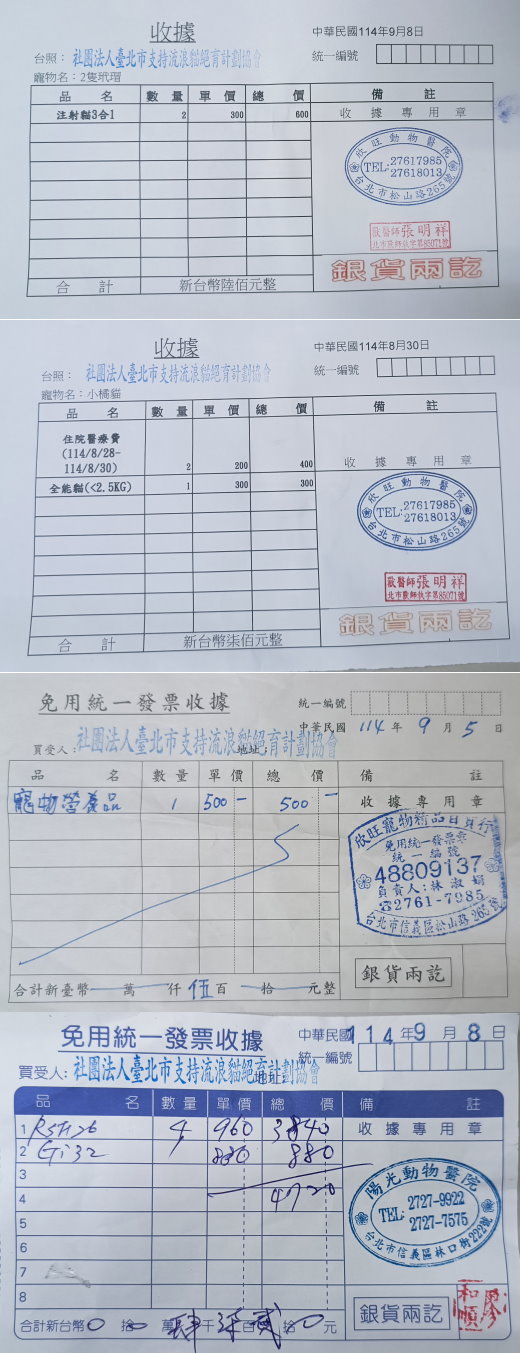 收據
中華民國114年9月8日
台照： 社團法人臺北市支持流浪貓絕育計劃協會
統一編號
寵物名：2隻玳瑁
品 名 數 量 單 價 總 價 備 註
注射貓3合1 2 300 600
收 據 專 用 章
欣旺動物醫院
TEL:27617985
27618013
台北市松山路265號
獸醫師張明祥
北市獸師執字第85071號
銀貨兩訖
合 計 新台幣陸佰元整
收據
中華民國114年8月30日
台照： 社團法人臺北市支持流浪貓絕育計劃協會
統一編號
寵物名：小橘貓
品 名 數 量 單 價 總 價 備 註
住院醫療費
(114/8/28-
114/8/30) 2 200 400
收 據 專 用 章
全能貓(<2.5KG) 1 300 300
欣旺動物醫院
TEL:27617985
27618013
台北市松山路265號
獸醫師張明祥
北市獸師執字第85071號
銀貨兩訖
合 計 新台幣柒佰元整
免用統一發票收據
統一編號
中華民國 114 年 9 月 5 日
買受人： 社團法人臺北市支持流浪貓絕育計劃協會
地址：
品 名 數 量 單 價 總 價 備 註
寵物營養品 1 500- 500-
收 據 專 用 章
欣旺寵物精品百貨行
免用統一發票
統一編號
48809137
負責人：林淑娟
☎2761-7985
台北市信義區松山路265號
銀貨兩訖
合計新臺幣 萬 仟 伍 百 拾 元整
免用統一發票收據
中華民國 114 年 9 月 8 日
統一編號
買受人： 社團法人臺北市支持流浪貓絕育計劃協會
地址：
品 名 數 量 單 價 總 價 備 註
1 RSFi26 4 960 3840
收 據 專 用 章
2 Gi32 880 880
3
4 4720
5
6
7
8
陽光動物醫院
TEL: 2727-9922
2727-7575
台北市信義區林口街222號
銀貨兩訖
廖和順
合計新台幣 0 拾 0 萬 肆 千 柒 百 貳 拾 0 元